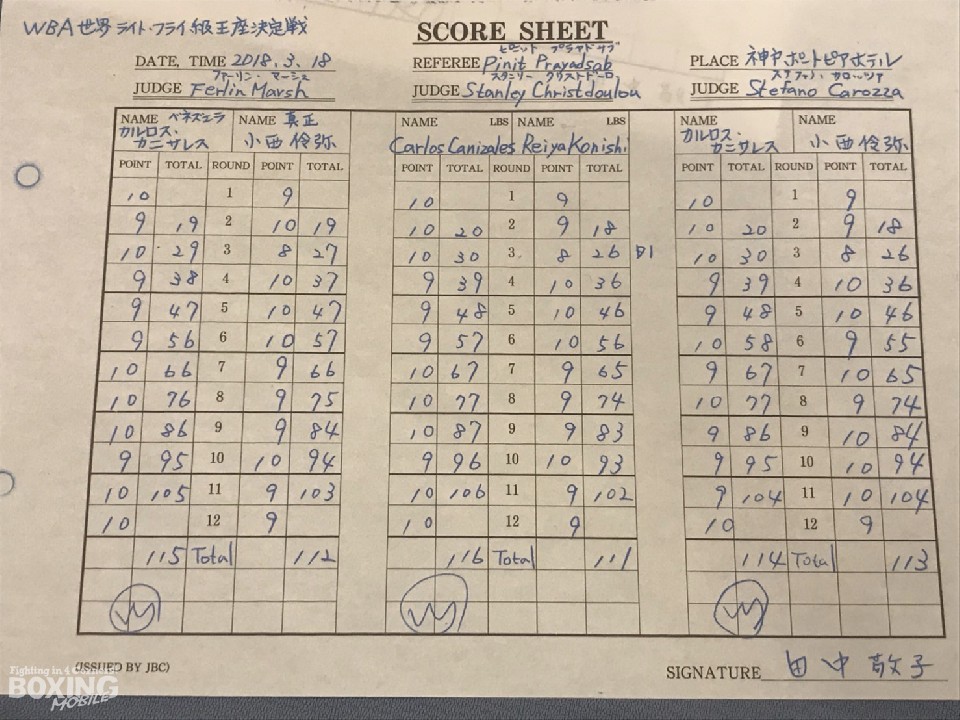 WBA世界ライト・フライ級王座決定戦
SCORE SHEET
ピニット プラヤドサブ
DATE, TIME 2018.3.18 REFEREE Pinit Prayadsab PLACE 神戸ポートピアホテル
ファーリン・マーシュ スタンリー クリストドーロ ステファノ カロッツァ
JUDGE Ferlin Marsh JUDGE Stanley Christdoulou JUDGE Stefano Carozza
NAME ベネズエラ NAME 真正 NAME LBS NAME LBS NAME NAME
カルロス・カニサレス 小西伶弥 Carlos Canizales Reiya Konishi カルロス・カニサレス 小西伶弥
POINT TOTAL ROUND POINT TOTAL POINT TOTAL ROUND POINT TOTAL POINT TOTAL ROUND POINT TOTAL
10 1 9 10 1 9 10 1 9
9 19 2 10 19 10 20 2 9 18 10 20 2 9 18
10 29 3 8 27 10 30 3 8 26 D1 10 30 3 8 26
9 38 4 10 37 9 39 4 10 36 9 39 4 10 36
9 47 5 10 47 9 48 5 10 46 9 48 5 10 46
9 56 6 10 57 9 57 6 10 56 10 58 6 9 55
10 66 7 9 66 10 67 7 9 65 9 67 7 10 65
10 76 8 9 75 10 77 8 9 74 10 77 8 9 74
10 86 9 9 84 10 87 9 9 83 9 86 9 10 84
9 95 10 10 94 9 96 10 10 93 9 95 10 10 94
10 105 11 9 103 10 106 11 9 102 9 104 11 10 104
10 12 9 10 12 9 10 12 9
115 Total 112 116 Total 111 114 Total 113
(ISSUED BY JBC)
SIGNATURE 田中敬子
Fighting in 4 Corners
BOXING
MOBILE